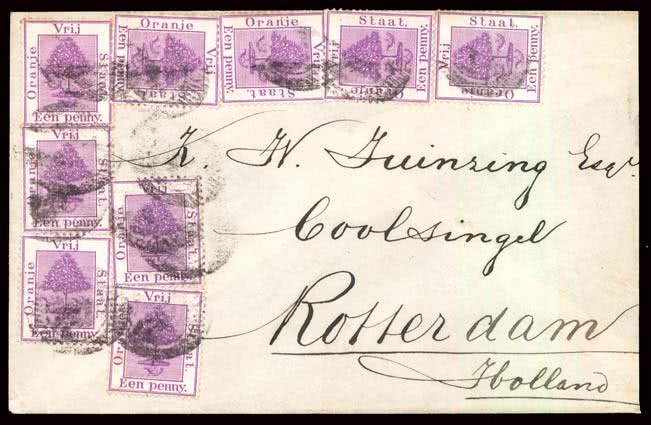 Vrij
Oranje
Staat.
Een penny.
Oranje
Vrij
Staat.
Een penny.
Oranje
Vrij
Staat.
Een penny.
Staat.
Vrij
Oranje
Een penny.
Staat.
Vrij
Oranje
Een penny.
Vrij
Oranje
Staat.
Een penny.
Vrij
Oranje
Staat.
Een penny.
Vrij
Oranje
Staat.
Een penny.
Vrij
Staat.
Een penny.
K. W. Tuinzing Esqr.
Coolsingel
Rotterdam
Holland